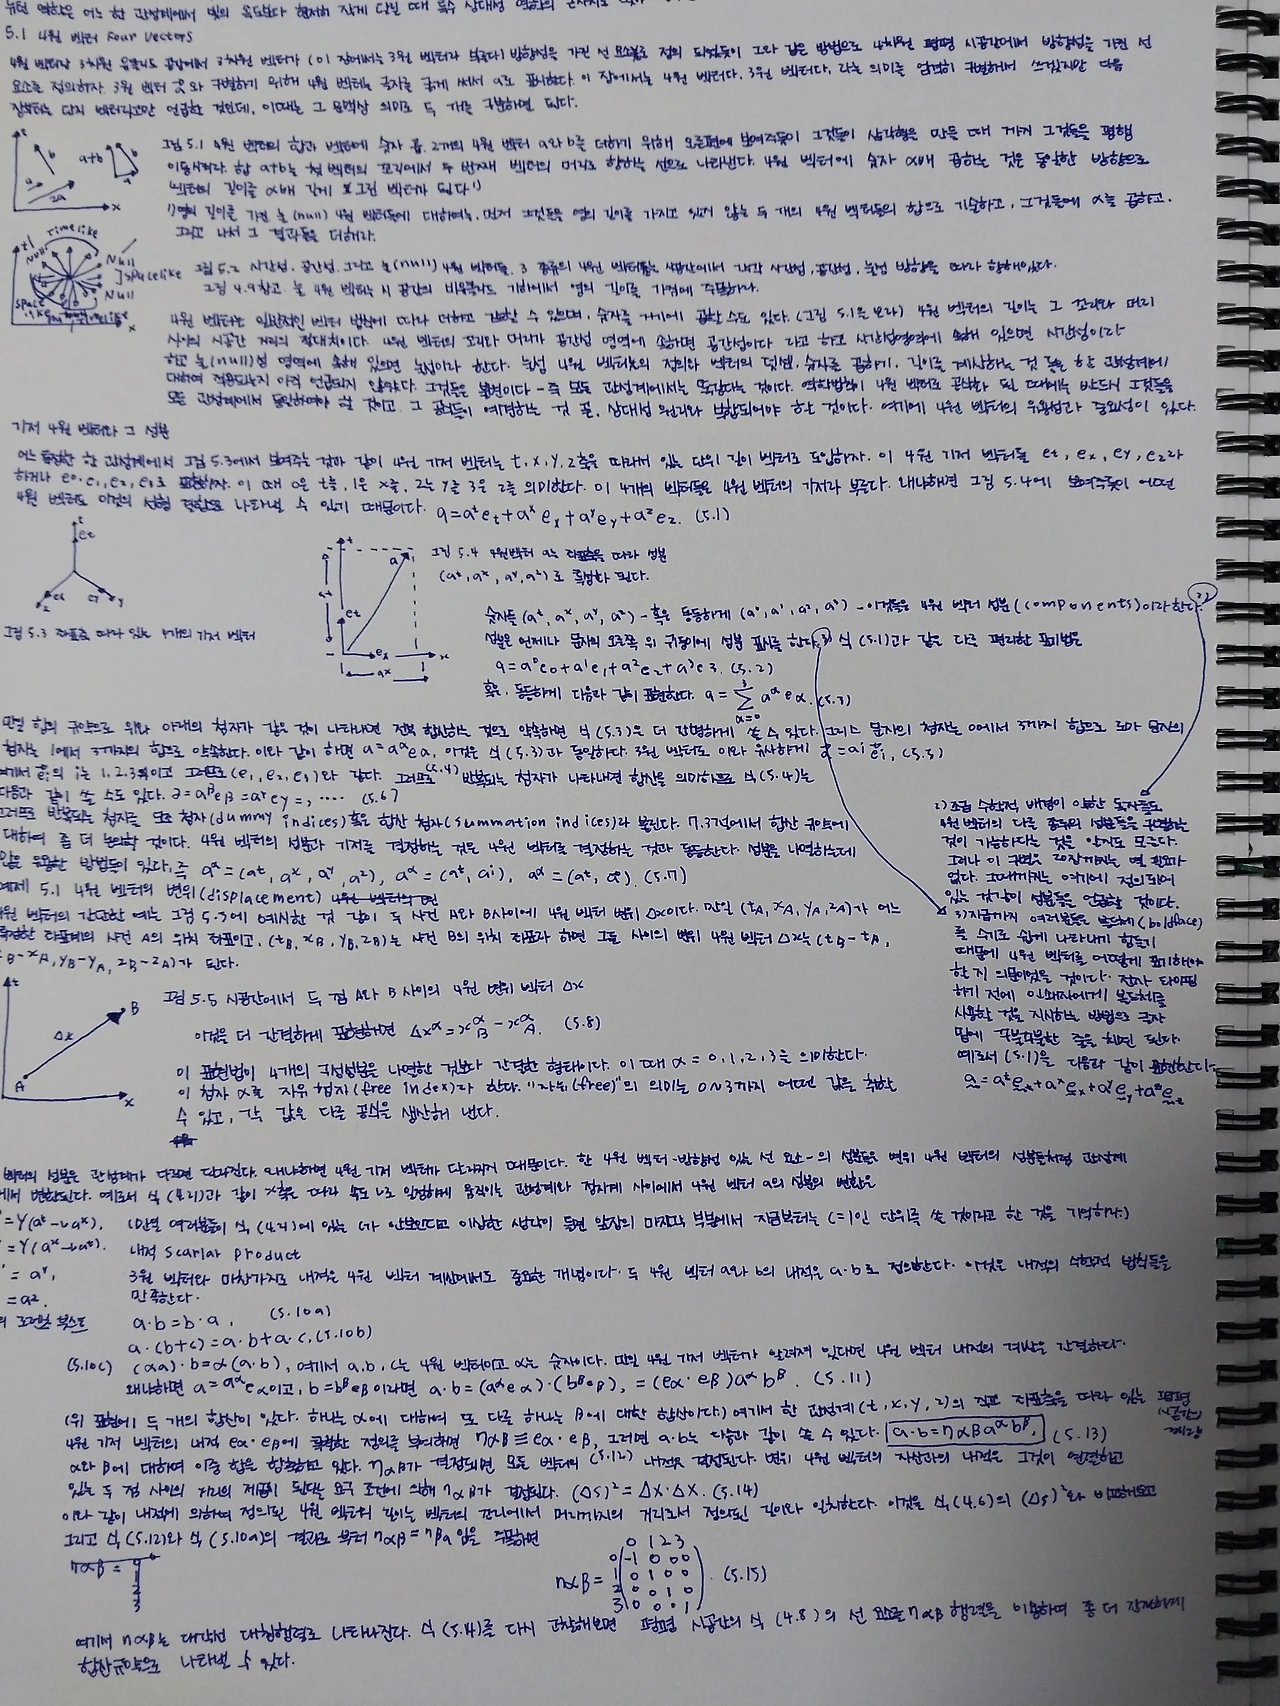 뉴턴 역학은 어느 한 관성계에서 빛의 속도보다 현저히 작게 움직일 때 특수 상대성 역학의
5.1 4원 벡터 Four vectors
4원 벡터란 3차원 유클리드 공간에서 3차원 벡터가 (이 장에서는 3원 벡터라 부른다) 방향성을 가진 선 요소들로 정의 되었듯이 그와 같은 방법으로 4차원 평평 시공간에서 방향성을 가진 선
요소로 정의하자. 3원 벡터 a와 구별하기 위해 4원 벡터는 글자를 굵게 써서 a로 표시한다. 이 장에서는 4원 벡터다, 3원 벡터다, 라는 의미를 엄격히 구별해서 쓰겠지만 다음
장부터는 단지 벡터라고만 언급할 것인데, 이때는 그 문맥상 의미로 두 개를 구분하면 된다.
t
b
a+b
b
a
a
2a
x
그림 5.1 4원 벡터의 합과 벡터에 숫자 곱. 2개의 4원 벡터 a와 b를 더하기 위해 오른편에 보여주듯이 그것들이 삼각형을 만들 때 까지 그것들을 평행
이동시켜라. 합 a+b는 첫 벡터의 꼬리에서 두 번째 벡터의 머리로 향하는 선으로 나타낸다. 4원 벡터에 숫자 α배 곱하는 것은 동일한 방향으로
벡터의 길이를 α배 길게 그린 벡터가 된다 1)
1) 영의 길이를 가진 눌(null) 4원 벡터들에 대하여는, 먼저 그것들은 영의 길이를 가지고 있지 않는 두 개의 4원 벡터들의 합으로 기술하고, 그것들에 α를 곱하고.
그리고 나서 그 결과들을 더해라.
Timelike
Null
Null
spacelike
Null
x
그림 5.2 시간성, 공간성, 그리고 눌(null) 4원 벡터들. 3 종류의 4원 벡터들은 시공간에서 각각 시간성, 공간성, 눌성 방향을 따라 향해있다.
그림 4.9 참고. 눌 4원 벡터는 시 공간의 비유클리드 기하에서 영의 길이를 가짐에 주목하라.
4원 벡터는 일반적인 벡터 법칙에 따라 더하고 곱할 수 있으며, 숫자를 거기에 곱할 수도 있다. (그림 5.1을 보라) 4원 벡터의 길이는 그 꼬리와 머리
사이의 시공간 거리의 절대치이다. 4원 벡터의 꼬리와 머리가 공간성 영역에 속하면 공간성이다 라고 하고 시간성영역에 속해 있으면 시간성이라
하고 눌(null)성 영역에 속해 있으면 눌성이라 한다. 4원 벡터의 정의와 벡터의 덧셈, 숫자를 곱하기, 길이를 계산하는 것 들을 한 관성계에
대하여 적용되는지 아직 언급되지 않았다. 그것들은 불변이다 - 즉 모든 관성계에서는 똑같다는 것이다. 역학법칙이 4원 벡터로 공식화 될 때에는 반드시 그것들은
모든 관성계에서 동일하여야 할 것이고, 그 공식들이 예견하는 것 또, 상대성 원리와 부합되어야 할 것이다. 여기에 4원 벡터의 유용성과 중요성이 있다.
기저 4원 벡터와 그 성분
어느 특정한 한 관성계에서 그림 5.3에서 보여주는 것과 같이 4원 기저 벡터는 t, x, y, z축을 따라서 있는 단위 길이 벡터로 도입하자. 이 4원 기저 벡터들 et, ex, ey, ez라
하거나 e0, e1, e2, e3로 표현하자. 이 때 0은 t를, 1은 x를, 2는 y를 3은 z를 의미한다. 이 4개의 벡터들을 4원 벡터의 기저라 부른다. 왜냐하면 그림 5.4에 보여주듯이 어떤
4원 벡터도 이것의 선형 결합으로 나타낼 수 있기 때문이다. a=aᵗet+aˣex+aʸey+aᶻez. (5.1)
et
ex
ey y
z
그림 5.3 좌표축 따라 있는 4개의 기저 벡터
t
a
aᵗ
et
ex
x
aˣ
그림 5.4 4원벡터 a는 좌표축을 따라 성분
(aᵗ, aˣ, aʸ, aᶻ)로 특성화 된다.
숫자들 (aᵗ, aˣ, aʸ, aᶻ) - 혹은 동등하게 (a⁰, a¹, a², a³) - 이것들을 4원 벡터 성분(components)이라 한다. 2)
성분은 언제나 문자의 오른쪽 위 귀퉁이에 성분 표시를 한다. 3) 식 (5.1)과 같은 다른 편리한 표기법은
a=a⁰e0+a¹e1+a²e2+a³e3. (5.2)
혹은, 동등하게 다음과 같이 표현한다. a=∑ aᵅeα. (5.3)
3
α=0
만일 합의 규약으로 위와 아래의 첨자가 같은 것이 나타내면 전부 합산하는 것으로 약속하면 식 (5.3)은 더 간명하게 쓸 수 있다. 그리스 문자의 첨자는 0에서 3까지 합으로 로마 문자의
첨자는 1에서 3까지의 합으로 약속한다. 이와 같이 하면 a=aᵅeα, 이것은 식 (5.3)과 동일하다. 3원 벡터로 이와 유사하게 a⃗=aⁱe⃗i, (5.5)
여기서 e⃗i의 i는 1,2,3이고 그러므로 (e1, e2, e3)와 같다. 그러므로 (5.4) 반복되는 첨자가 나타내면 합산을 의미하므로 식 (5.4)는
다음과 같이 쓸 수도 있다. a=aᵝeβ=aᵞeγ=, .... (5.6)
그러므로 반복되는 첨자는 모조 첨자(dummy indices) 혹은 합산 첨자(summation indices)라 불린다. 7.3절에서 합산 규약에
대하여 좀 더 논의할 것이다. 4원 벡터의 성분과 기저를 결정하는 것은 4원 벡터를 결정하는 것과 동등하다. 성분을 나열하는데
있는 유용한 방법들이 있다, 즉 aᵅ=(aᵗ, aˣ, aʸ, aᶻ), aᵅ=(aᵗ, aⁱ), aᵅ=(aᵗ, a⃗). (5.7)
예제 5.1 4원 벡터의 변위(displacement)
4원 벡터의 간단한 예는 그림 5.5에 예시한 것 같이 두 사건 A와 B사이에 4원 벡터 변위 Δx이다. 만일 (tA, xA, yA, zA)가 어느
특정한 좌표계의 사건 A의 위치 좌표이고, (tB, xB, yB, zB)는 사건 B의 위치 좌표라 하면 그들 사이의 변위 4원 벡터 Δx는 (tB-tA,
xB-xA, yB-yA, zB-zA)가 된다.
t
B
Δx
A
x
그림 5.5 시공간에서 두 점 A와 B 사이의 4원 변위 벡터 Δx
이것을 더 간결하게 표현하면 Δxᵅ=xᵅB-xᵅA. (5.8)
이 표현법이 4개의 구성성분을 나열한 것보다 간결한 형태이다. 이 때 α=0,1,2,3을 의미한다.
이 첨자 α를 자유 첨자(free index)라 한다. "자유(free)"의 의미는 0에서 3까지 어떤 값을 취할
수 있고, 각 값은 다른 공식을 생산해 낸다.
2) 조금 수학적 배경이 있는 독자들은
4원 벡터의 다른 종류의 성분들을 구별하는
것이 가능하다는 것을 알지도 모른다.
그러나 이 구별은 20장까지는 별 필요가
없다. 그때까지는 여기에 정의되어
있는 것같이 성분들을 언급할 것이다.
3) 지금까지 여러분들은 볼드체(boldface)
를 수기로 쉽게 나타내기 힘들기
때문에 4원 벡터를 어떻게 표기해야
할 지 의문이었을 것이다. 전자 타이핑
하기 전에 인쇄자에게 볼드체를
사용할 것을 지시하는 방법으로 글자
밑에 구불구불한 줄을 치면 된다.
예로서 (5.1)을 다음과 같이 표현한다.
a=aᵗet+aˣex+aʸey+aᶻez
벡터의 성분은 관성계가 다르면 달라진다. 왜냐하면 4원 기저 벡터가 달라지기 때문이다. 한 4원 벡터 -방향성 있는 선 요소- 의 성분들은 변위 4원 벡터의 성분들처럼 관성계
에서 변환된다. 예로서 식 (4.21)과 같이 x축을 따라 속도 v로 일정하게 움직이는 관성계와 정지계 사이에서 4원 벡터 a의 성분의 변환은
'=γ(aᵗ-vaˣ). (만일 여러분들이 식 (4.21)에 있는 c가 안보인다고 이상한 생각이 들면 앞장의 마지막 부분에서 지금부터는 c=1인 단위를 쓸 것이라고 한 것을 기억하라.)
'=γ(aˣ-vaᵗ).
'=aʸ,
=aᶻ.
의 로렌츠 부스트
내적 Scarlar product
3원 벡터와 마찬가지로 내적은 4원 벡터 계산에서도 중요한 개념이다. 두 4원 벡터 a와 b의 내적은 a·b로 정의한다. 이것은 내적의 수학적 법칙들을
만족한다.
a·b=b·a, (5.10a)
a·(b+c)=a·b+a·c, (5.10b)
(5.10c) (αa)·b=α(a·b), 여기서 a, b, c는 4원 벡터이고 α는 숫자이다. 만일 4원 기저 벡터가 알려져 있다면 4원 벡터 내적의 계산은 간결하다.
왜냐하면 a=aᵅeα이고, b=bᵝeβ이라면 a·b=(aᵅeα)·(bᵝeβ), =(eα·eβ)aᵅbᵝ. (5.11)
(위 표현에 두 개의 합산이 있다. 하나는 α에 대하여 또 다른 하나는 β에 대한 합산이다) 여기서 한 관성계 (t, x, y, z)의 직교 좌표축을 따라 있는 평평
(시공간의
계량)
4원 기저 벡터의 내적 eα·eβ에 특별한 정의를 부여하면 ηαβ≡eα·eβ, 그러면 a·b는 다음과 같이 쓸 수 있다. a·b=ηαβaᵅbᵝ. (5.13)
α와 β에 대하여 이중 합을 함축하고 있다. ηαβ가 결정되면 모든 벡터의 (5.12) 내적은 결정된다. 변위 4원 벡터의 자신과의 내적은 그것이 연결하고
있는 두 점 사이의 거리의 제곱이 된다는 요구 조건에 의해 ηαβ가 결정된다. (Δs)²=Δx·Δx. (5.14)
이와 같이 내적에 의하여 정의된 4원 벡터의 길이는 벡터의 꼬리에서 머리까지의 거리로서 정의된 길이와 일치한다. 이것을 식 (4.6)의 (Δs)²와 비교해보고
그리고 식 (5.12)와 식 (5.10a)의 결과로 부터 ηαβ=ηβα 임을 주목하면
ηαβ=
0
1
2
3
0 1 2 3
0 -1 0 0 0
ηαβ= 1 0 1 0 0 . (5.15)
2 0 0 1 0
3 0 0 0 1
여기서 ηαβ는 대각선 대칭행렬로 나타나진다. 식 (5.14)를 다시 고찰해보면 평평 시공간의 식 (4.8)의 선 요소를 ηαβ 행렬을 이용하여 좀 더 간결하게
합산규약으로 나타낼 수 있다.